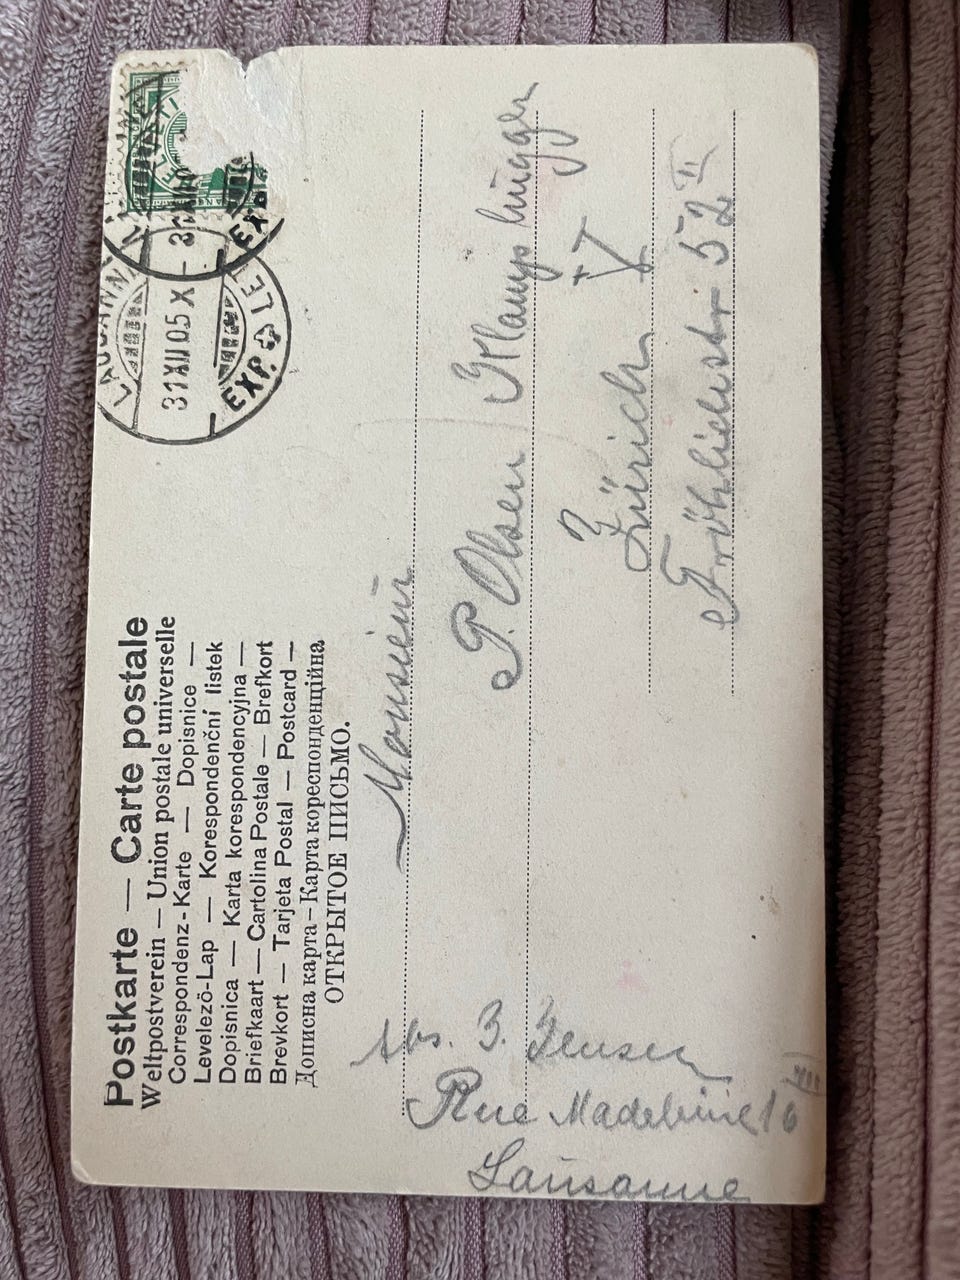 Postkarte — Carte postale
Weltpostverein — Union postale universelle
Correspondenz-Karte — Dopisnice —
Levelező-Lap — Korespondenční listek
Dopisnica — Karta korespondencyjna —
Briefkaart — Cartolina Postale — Brefkort
Brevkort — Tarjeta Postal — Postcard —
Дописна карта – Карта кореспонденційна
ОТКРЫТОЕ ПИСЬМО.
LAUSANNE
31 XII 05 X –
EXP. LE
Monsieur
P. Olsen
Zürich V
52 II
Abs. J. Jensen
Rue Madeleine 16 III
Lausanne